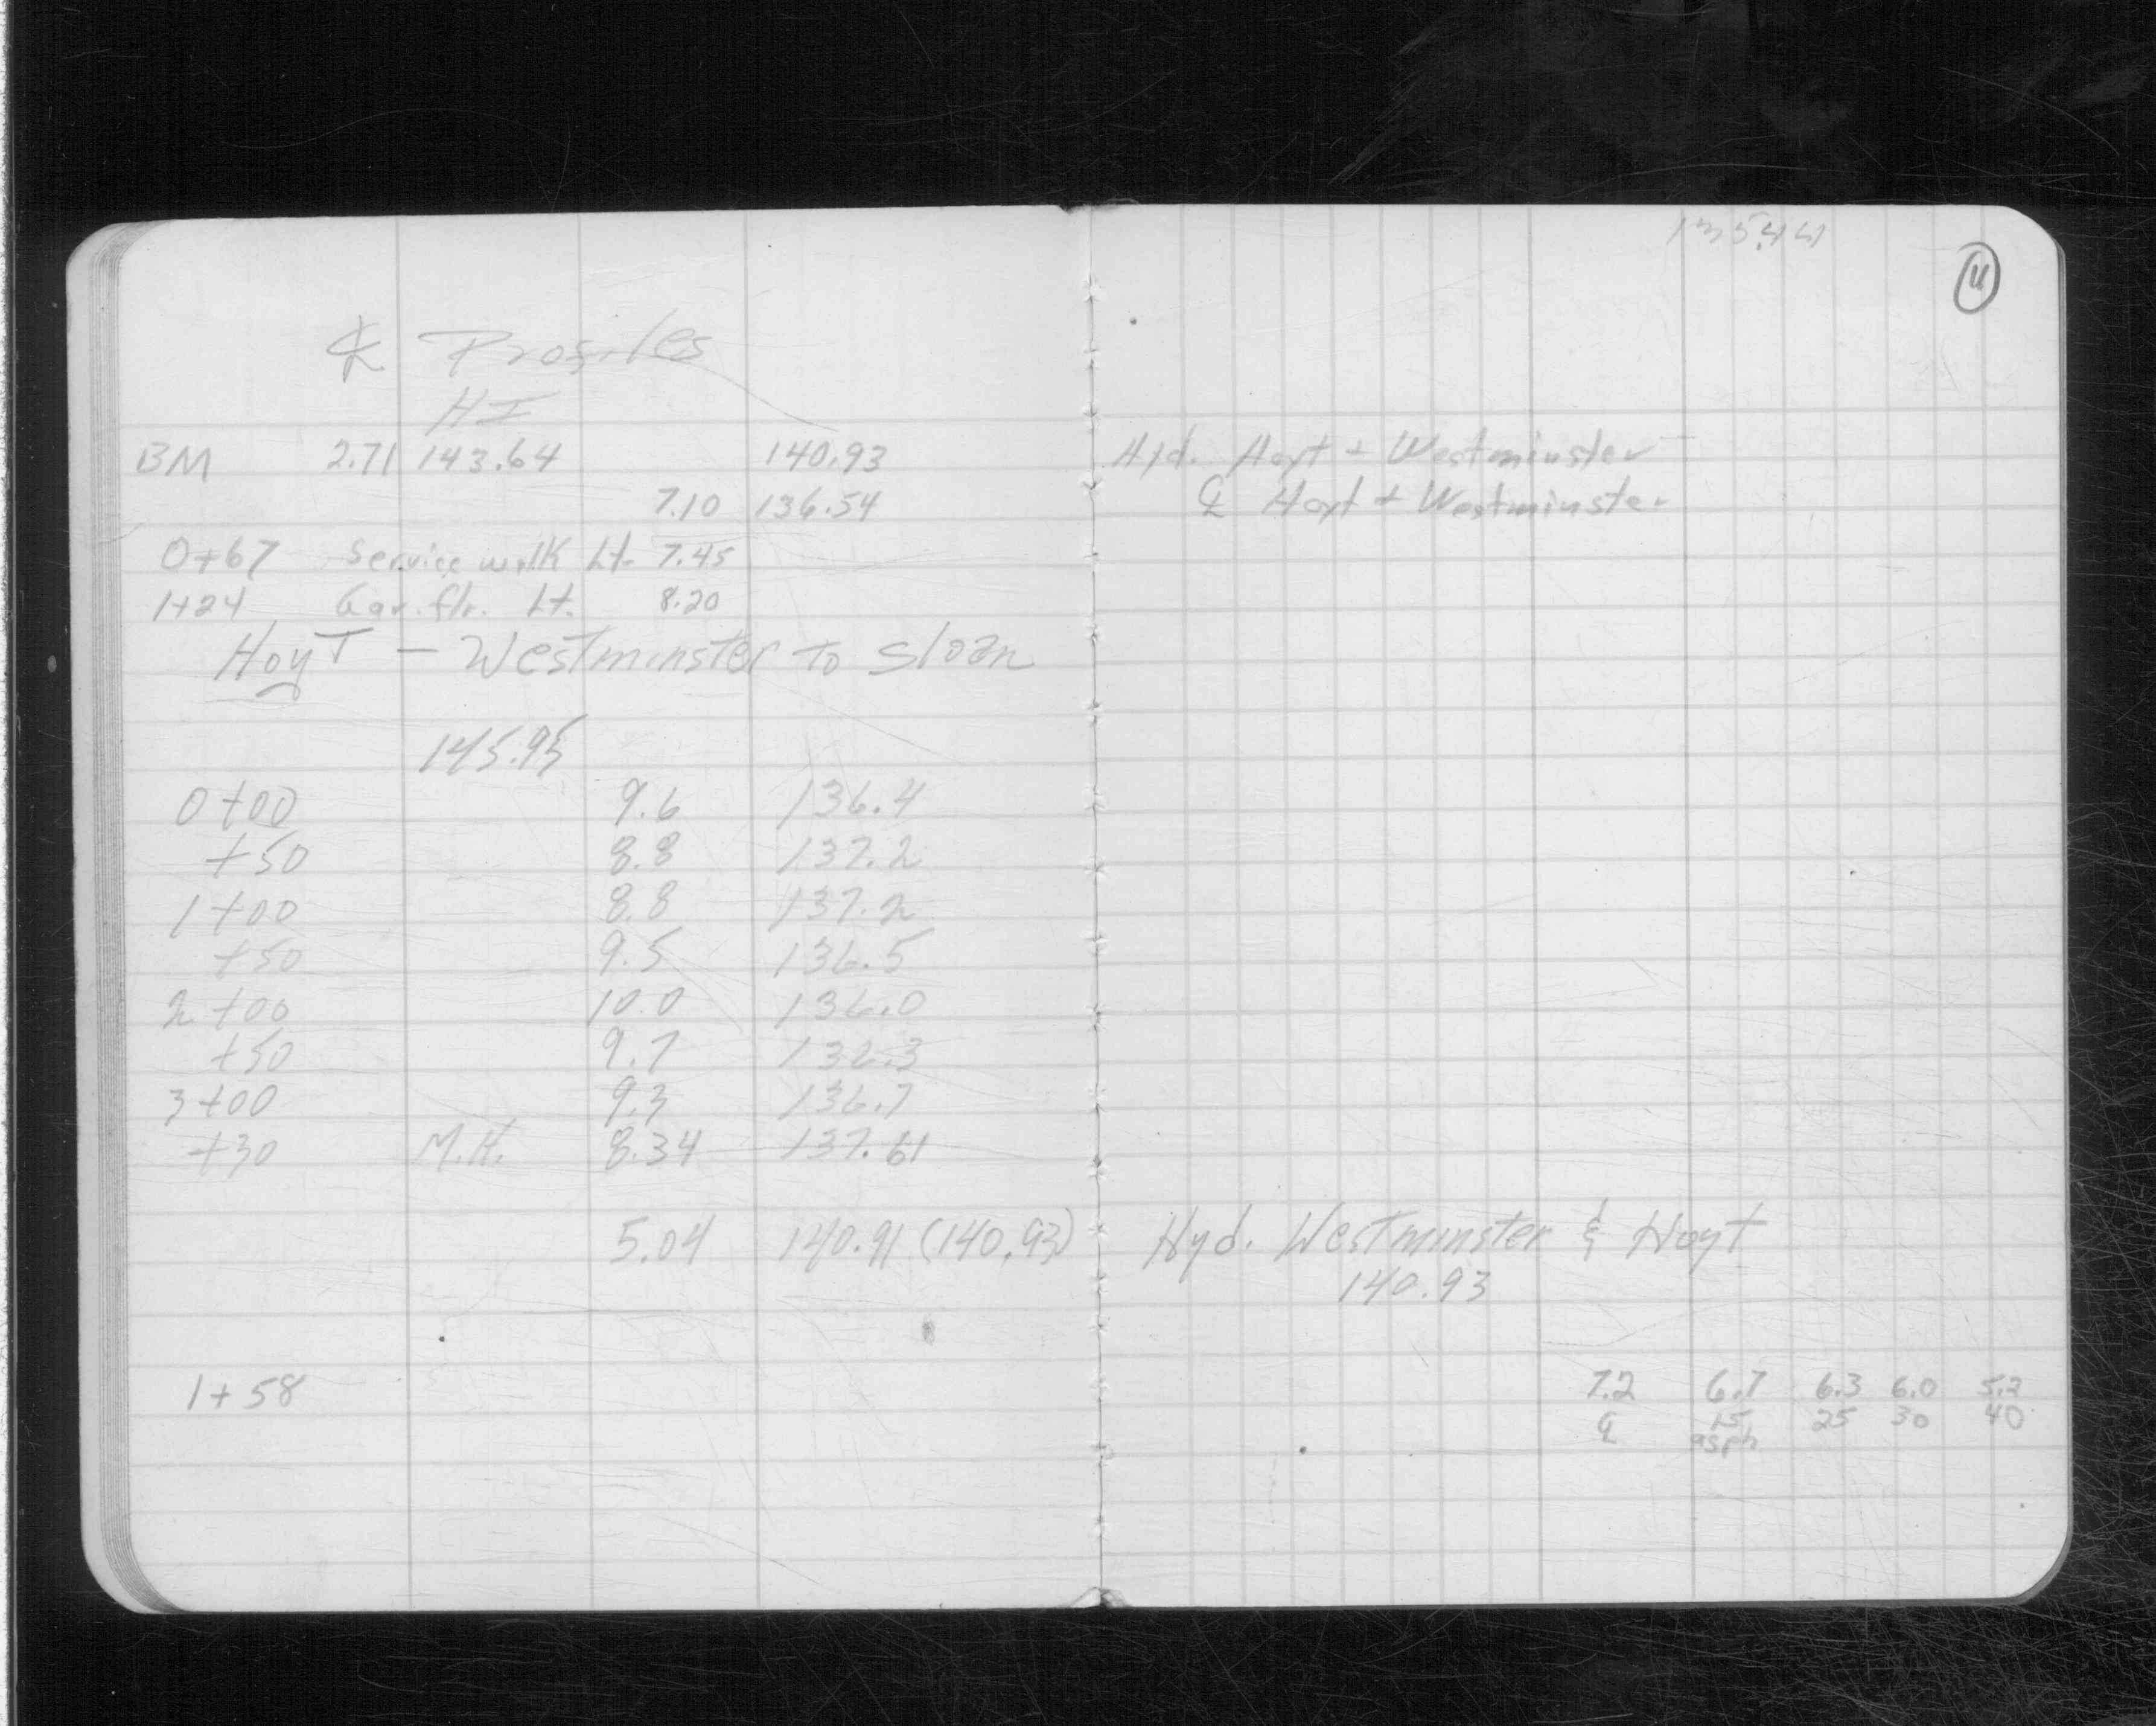 135.441
11
℄ Profiles
HI
BM 2.71 143.64 140.93 Hyd. Hoyt + Westminster
7.10 136.54 ℄ Hoyt + Westminster
0+67 Service walk Lt. 7.45
1+24 Gar. flr. Lt. 8.20
Hoyt — Westminster To Sloan
145.95
0+00 9.6 136.4
+50 8.8 137.2
1+00 8.8 137.2
+50 9.5 136.5
2+00 10.0 136.0
+50 9.7 136.3
3+00 9.3 136.7
+30 M.H. 8.34 137.61
5.04 140.91 (140.93) Hyd. Westminster & Hoyt
140.93
1+58 7.2 6.7 6.3 6.0 5.2
℄ 15 25 30 40
asph